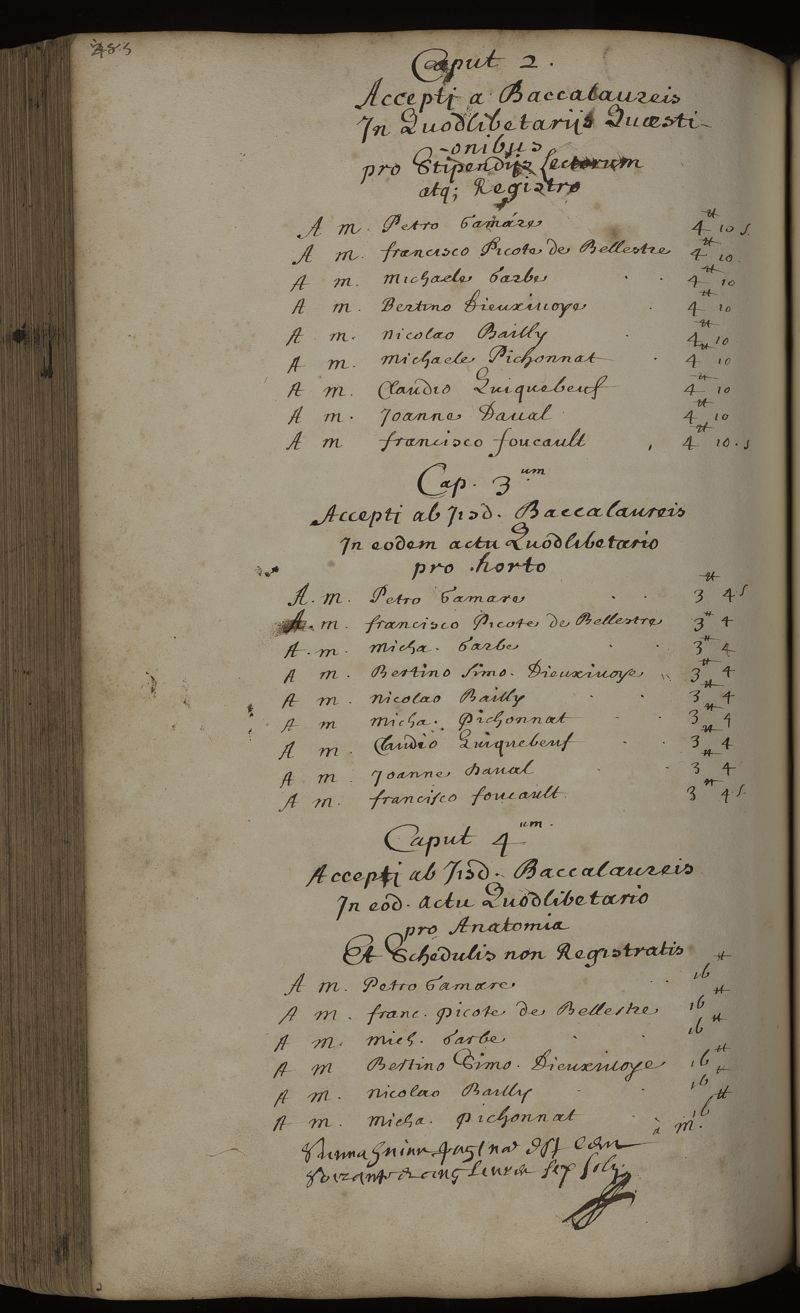 485
Caput 2.
Acceptj a Baccalaureis
In Quodlibetarijs Quæsti-
-onibus
pro Stipendijs Lectorum
atq; Registro
A m. Petro Gamare 4 ₶ 10 s
A m. francisco Picote de Bellestre 4 ₶ 10.
A m. Michaele Garbe 4 ₶ 10
A m. Bertino Dieuxiuoye 4 ₶ 10
A m. nicolao Bailly 4 ₶ 10
A m. Michaele Pichonnat 4 ₶ 10
A m. Claudio Quiquebeuf 4 ₶ 10
A m. Joanne Daual 4 ₶ 10
A m francisco foucault 4 ₶ 10. s
Cap. 3um
Acceptj ab Jisd. Baccalaureis
In eodem actu Quodlibetario
pro horto
A. m. Petro Gamare 3 ₶ 4 s
A. m. francisco Picote de Bellestre 3 ₶ 4
A. m. Micha. Garbe 3 ₶ 4
A m. Bertino Simo. Dieuxiuoye 3 ₶ 4
A m. nicolao Bailly 3 ₶ 4
A m Micha. Pichonnat 3 ₶ 4
A m. Claudio Quiquebeuf 3 ₶ 4
A m Joanne Daual 3 ₶ 4
A m. francisco foucault 3 ₶ 4 s.
Caput 4um.
Acceptj ab Jisd. Baccalaureis
In eod. actu Quodlibetario
pro Anatomia
Et Schedulis non Registratis
A m. Petro Gamare 16 ₶
A m. franc. picote de Bellestre 16 ₶
A m. Mich. Garbe 16 ₶
A m Bertino Simo. Dieuxiuoye 16 ₶
A m. nicolao Bailly 16 ₶
A m. Micha. pichonnat 16 ₶
à m.
Summa huius paginae est Cent
Soixante & cinq Liures six solz